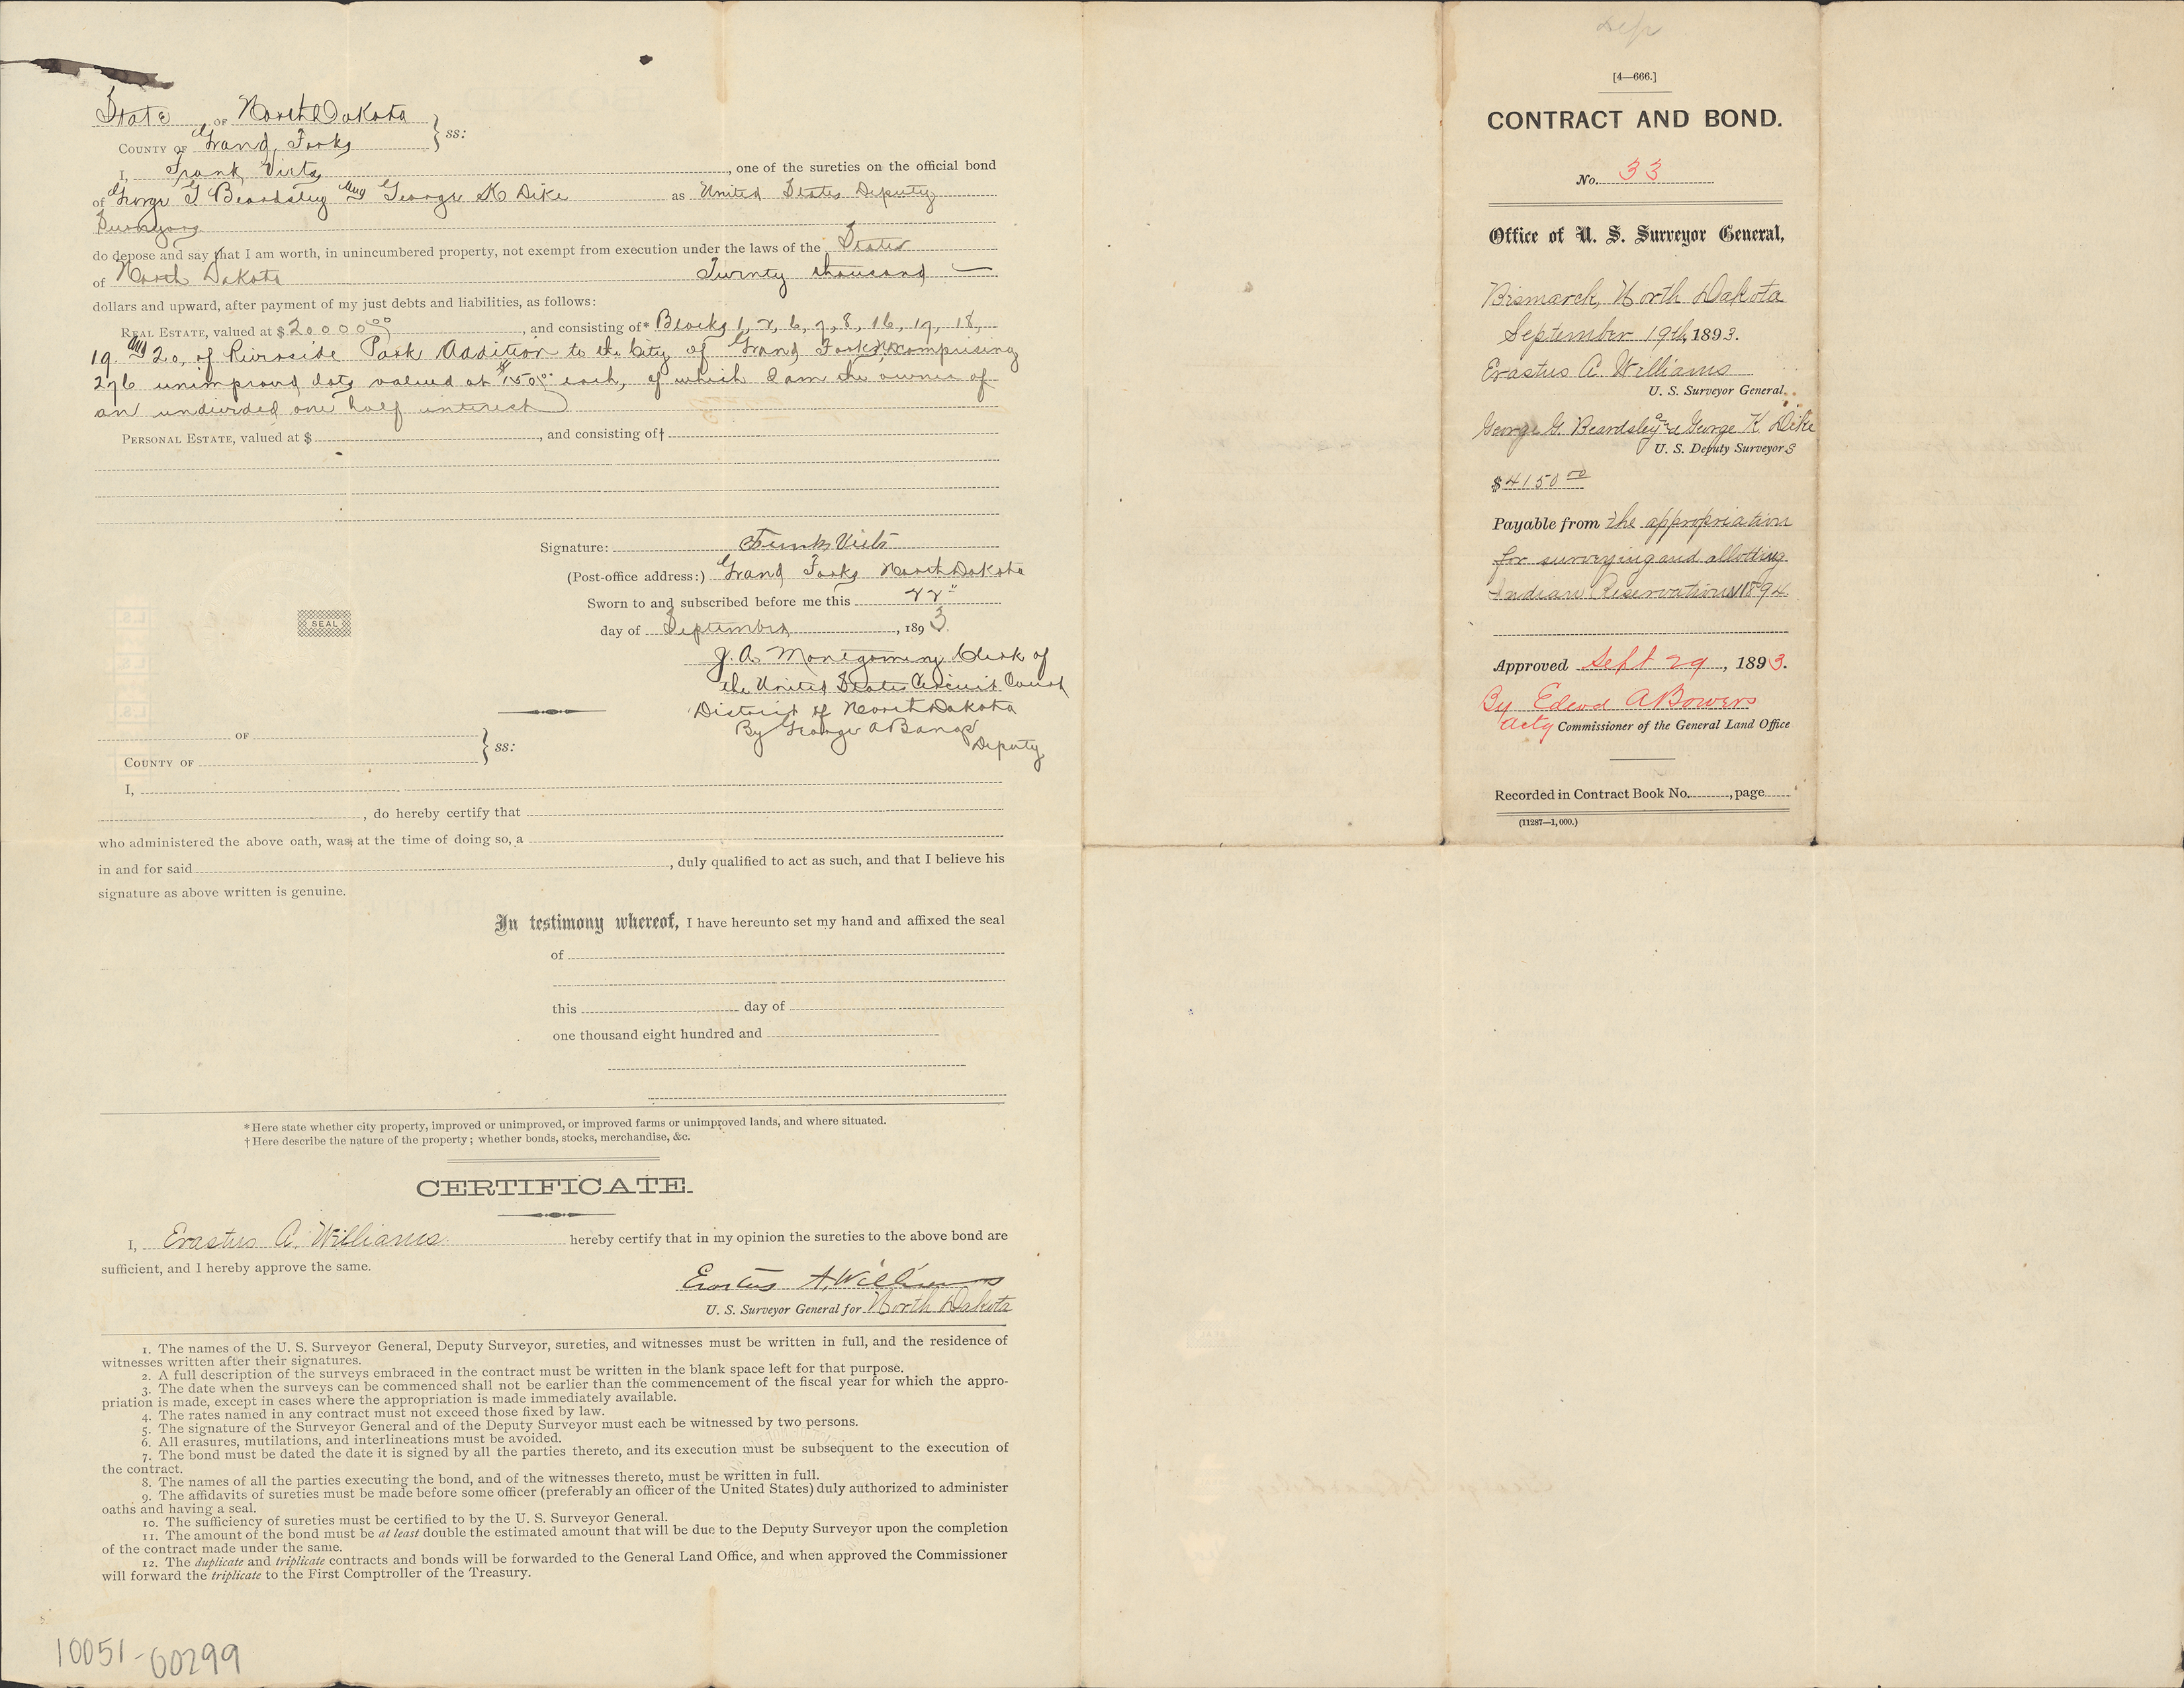 State OF North Dakota
COUNTY OF Grand Forks } ss:
I, Frank Viets, one of the sureties on the official bond
of George G Beardsley and George K Dike as United States Deputy
Surveyors
do depose and say that I am worth, in unincumbered property, not exempt from execution under the laws of the State
of North Dakota Twenty thousand
dollars and upward, after payment of my just debts and liabilities, as follows:
REAL ESTATE, valued at $20000 00, and consisting of* Blocks 1, 2, 6, 7, 8, 16, 17, 18,
19 and 20, of Riverside Park Addition to the City of Grand Forks comprising
276 unimproved lots valued at $150 00 each, of which I am the owner of
an undivided one half interest
PERSONAL ESTATE, valued at $ , and consisting of†
Signature: Frank Viets
(Post-office address:) Grand Forks North Dakota
Sworn to and subscribed before me this 22"
SEAL
day of September, 1893.
J. A. Montgomery Clerk of
the United States Circuit Court
District of North Dakota
By George A Bangs
Deputy
OF
COUNTY OF } ss:
I,
, do hereby certify that
who administered the above oath, was, at the time of doing so, a
in and for said , duly qualified to act as such, and that I believe his
signature as above written is genuine.
In testimony whereof, I have hereunto set my hand and affixed the seal
of
this day of
one thousand eight hundred and
* Here state whether city property, improved or unimproved, or improved farms or unimproved lands, and where situated.
† Here describe the nature of the property; whether bonds, stocks, merchandise, &c.
CERTIFICATE.
I, Erastus A. Williams hereby certify that in my opinion the sureties to the above bond are
sufficient, and I hereby approve the same.
Erastus A. Williams
U. S. Surveyor General for North Dakota
1. The names of the U. S. Surveyor General, Deputy Surveyor, sureties, and witnesses must be written in full, and the residence of
witnesses written after their signatures.
2. A full description of the surveys embraced in the contract must be written in the blank space left for that purpose.
3. The date when the surveys can be commenced shall not be earlier than the commencement of the fiscal year for which the appro-
priation is made, except in cases where the appropriation is made immediately available.
4. The rates named in any contract must not exceed those fixed by law.
5. The signature of the Surveyor General and of the Deputy Surveyor must each be witnessed by two persons.
6. All erasures, mutilations, and interlineations must be avoided.
7. The bond must be dated the date it is signed by all the parties thereto, and its execution must be subsequent to the execution of
the contract.
8. The names of all the parties executing the bond, and of the witnesses thereto, must be written in full.
9. The affidavits of sureties must be made before some officer (preferably an officer of the United States) duly authorized to administer
oaths and having a seal.
10. The sufficiency of sureties must be certified to by the U. S. Surveyor General.
11. The amount of the bond must be at least double the estimated amount that will be due to the Deputy Surveyor upon the completion
of the contract made under the same.
12. The duplicate and triplicate contracts and bonds will be forwarded to the General Land Office, and when approved the Commissioner
will forward the triplicate to the First Comptroller of the Treasury.
10051-00299
[4—666.]
CONTRACT AND BOND.
No. 33
Office of U. S. Surveyor General,
Bismarck, North Dakota
September 19th, 1893.
Erastus A. Williams
U. S. Surveyor General.
George G. Beardsley and George K. Dike
U. S. Deputy Surveyors
$4150 00
Payable from the appropriation
for surveying and allotting
Indian Reservations 1894.
Approved Sept 29, 1893.
By Edwd A Bowers
Actg Commissioner of the General Land Office
Recorded in Contract Book No. , page
(11287—1,000.)